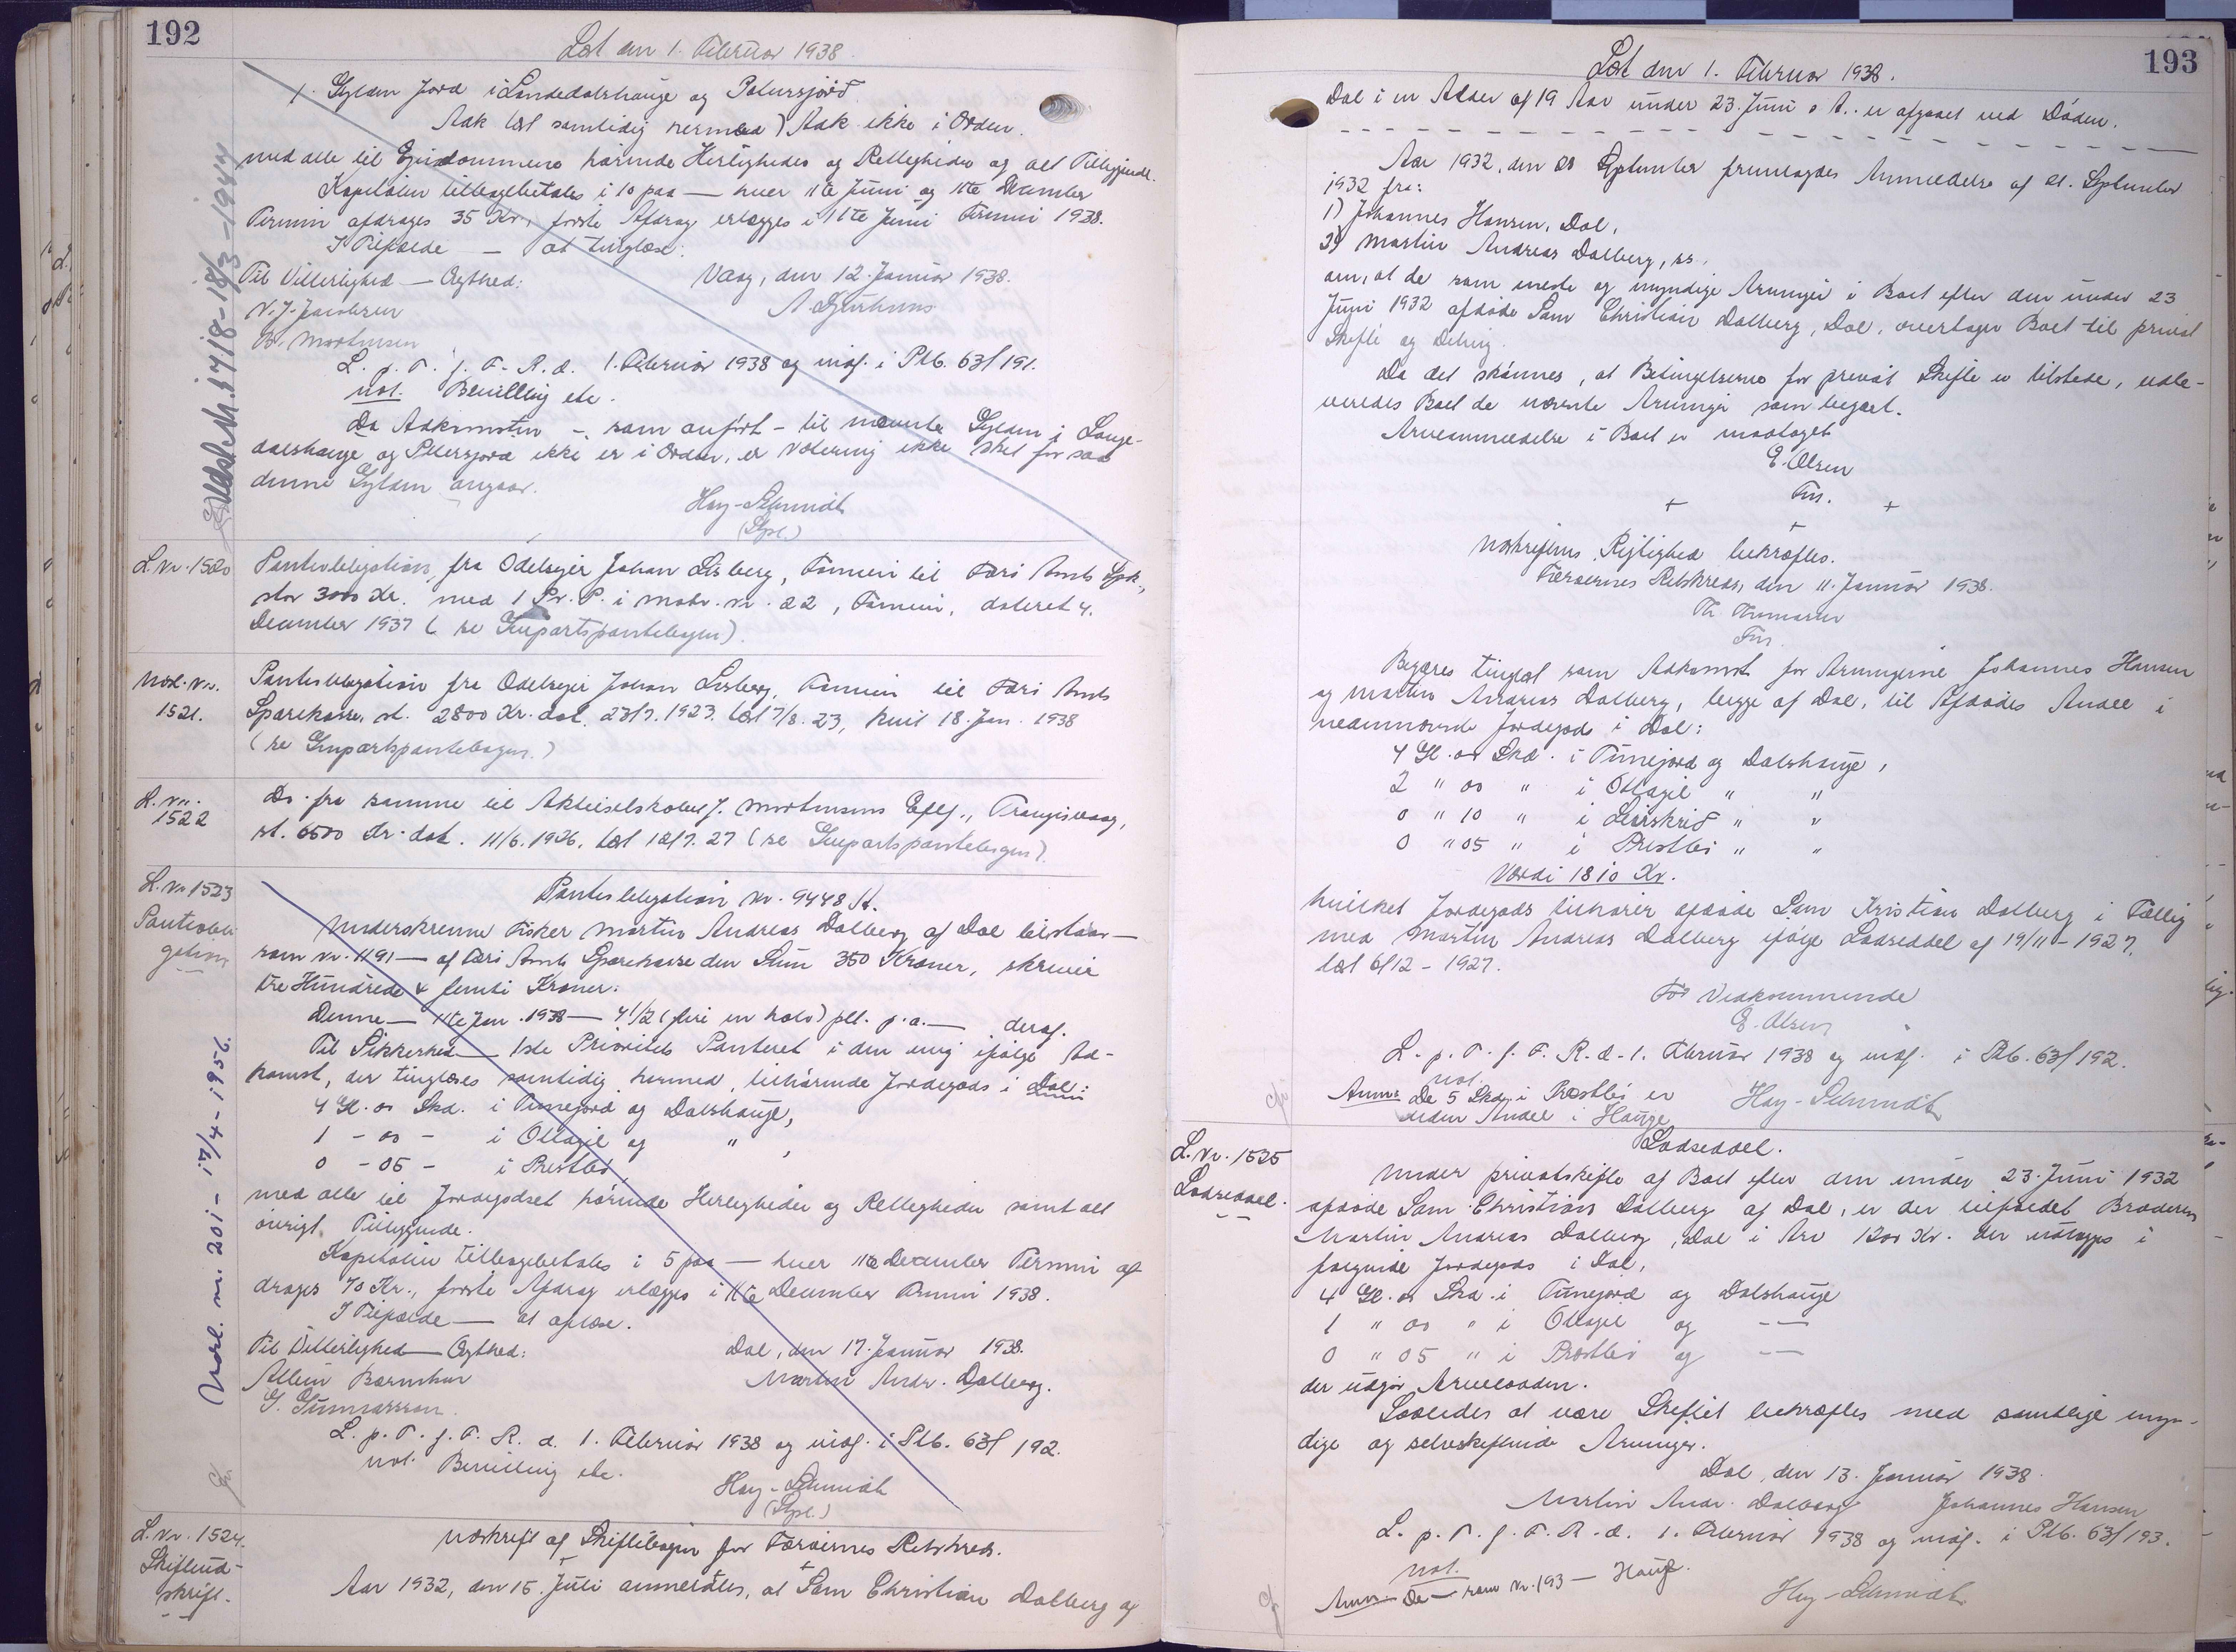 192
Læst den 1. Februar 1938.
1. Gylden Jord i Landedalshauge og Petersjord
Adk læst samtidig hermed) Adk ikke i Orden.
med alle til Ejendommene hørende Herligheder og Rettigheder og alt Tilliggende.
Kapitalen tilbagebetales i 10 paa — hver 11te Juni og 11te December
Termin afdrages 35 Kr., første Afdrag erlægges i 11te Juni Termin 1938.
I Tilfælde — at tinglæse.
Til Vitterlighed — Ægthed:
Vaag, den 12. Januar 1938.
N. J. Jacobsen
Mortensen
L. p. T. f. F. R. d. 1. Februar 1938 og indf. i Ptb. 63/191.
not. Bevilling etc.
Da Adkomsten - som anført - til nævnte Gylden i Lange-
dalshauge og Petersjord ikke er i Orden, er Notering ikke sket for saa
denne Gylden angaar.
Hey-Schmidt
(Spl.)
Udsl. M. i 718-18/3-1944
L. Nr. 1520
Panteobligation fra Odelsejer Johan Lisberg, Famien til Færø Amts Spk.,
stor 3000 Kr. med 1 Pr. P. i Matr. Nr. 22, Famien, dateret 4.
December 1937 (se Genpartspantebogen).
Udsl. Nr.
1521.
Panteobligation fra Odelsejer Johan Lisberg, Famien til Færø Amts
Sparekasse, st. 2800 Kr. dat. 23/7. 1923. læst 7/8. 23, kvit 18. Jan. 1938
(se Genpartspantebogen.)
L. Nr.
1522
Do. fra samme til Aktieselskabet J. Mortensens Eftf., Trangisvaag,
st. 6500 Kr. dat. 11/6. 1926. læst 12/7. 27 (se Genpartspantebogen).
L. Nr 1523
Panteobli
gation
Panteobligation Nr. 9448 A.
Underskrevne Fisker Martin Andreas Dalberg af Dal tilstaar —
som Nr. 1191 — af Færø Amts Sparekasse den Sum 350 Kroner, skriver
tre Hundrede & femti Kroner:
Denne — 11te Jan. 1938 — 4 1/2 (fire en halv) pCt. p. a. — deraf.
Til Sikkerhed — 1ste Prioritets Panteret i den mig ifølge Ad-
komst, der tinglæses samtidig hermed, tilhørende Jordegods i Dal:
4 Gl. 00 Skd. i Tunejord og Dalshauge,
1 - 00 - i Ottagil og " ,
0 - 05 - i Prestbø
med alle til Jordegodset hørende Herligheder og Rettigheder samt alt
øvrigt Tilliggende.
Kapitalen tilbagebetales i 5 paa — hver 11te December Termin af
drages 70 Kr., første Afdrag erlægges i 11te December Termin 1938.
I Tilfælde — at aflæse.
Til Vitterlighed — Ægthed:
Dal, den 17. Januar 1938.
Martin Andr. Dalberg.
G. Gunnarsson.
L. p. T. f. F. R. d. 1. Februar 1938 og indf. i Ptb. 63/192.
not. Bevilling etc.
Hey-Schmidt
(Spl.)
Udsl. nr. 201 - 12/4-1956.
L. Nr. 1524.
Skifteud-
skrift.
Udskrift af Skiftebogen for Færøernes Retskreds.
Aar 1932, den 15. Juli anmeldtes, at Sam Christian Dalberg af
193
Læst den 1. Februar 1938.
Dal i en Alder af 19 Aar under 23. Juni s. A. er afgaaet ved Døden.
Aar 1932, den 28 September fremlagdes Anmeldelse af 21. September
1932 fra:
1) Johannes Hansen, Dal,
2) Martin Andreas Dalberg, ss.
om, at de som eneste og myndige Arvinger i Boet efter den under 23
Juni 1932 afdøde Sam Christian Dalberg, Dal, overtager Boet til privat
Skifte og Deling.
Da det skønnes, at Betingelserne for privat Skifte er tilstede, udle-
veredes Boet de nævnte Arvinger som begært.
Arveanmeldelse i Boet er modtaget
E. Olsen
Fm.
+ + +
Udskriftens Rigtighed bekræftes.
Færøernes Retskreds, den 11. Januar 1938.
Fm
Begæres tinglæst som Adkomst for Arvingerne Johannes Hansen
og Martin Andreas Dalberg, begge af Dal, til Afdødes Andel i
nedennævnte Jordegods i Dal:
4 Gl. 00 Skd. i Tunejord og Dalshauge,
2 " 00 " i Ottagil " "
0 " 10 " i Leirskrid " "
0 " 05 " i Prestbø " "
Værdi 1810 Kr.
hvilket Jordegods tilhører afdøde Sam Kristian Dalberg i Fællig
med Martin Andreas Dalberg ifølge Lodseddel af 19/11-1927.
læst 6/12-1927.
For Vedkommende
E. Olsen
L. p. T. f. F. R. d. 1. Februar 1938 og indf. i Ptb. 63/192.
not.
Anm: De 5 Skd. i Prestbø er
uden Andel i Hauge
Hey-Schmidt
L. Nr. 1525
Lodseddel.
Lodseddel.
Under privatskifte af Boet efter den under 23. Juni 1932
afdøde Sam Christian Dalberg af Dal, er der tilfaldet Broderen
Martin Andreas Dalberg, Dal i Arv 1200 Kr. der udlægges i
følgende Jordegods i Dal,
4 Gl. 00 Skd. i Tunejord og Dalshauge
1 " 00 " i Ottagil og — —
0 " 05 " i Prestbø og — —
der udgør Arvelodden.
Saaledes at være Skiftet bekræftes med samtlige myn-
dige og selvskiftende Arvinger.
Dal, den 13. Januar 1938.
Martin Andr. Dalberg Johannes Hansen
L. p. T. f. F. R. d. 1. Februar 1938 og indf. i Ptb. 63/193.
not.
Anm: De — som Nr. 193 — Hauge.
Hey-Schmidt